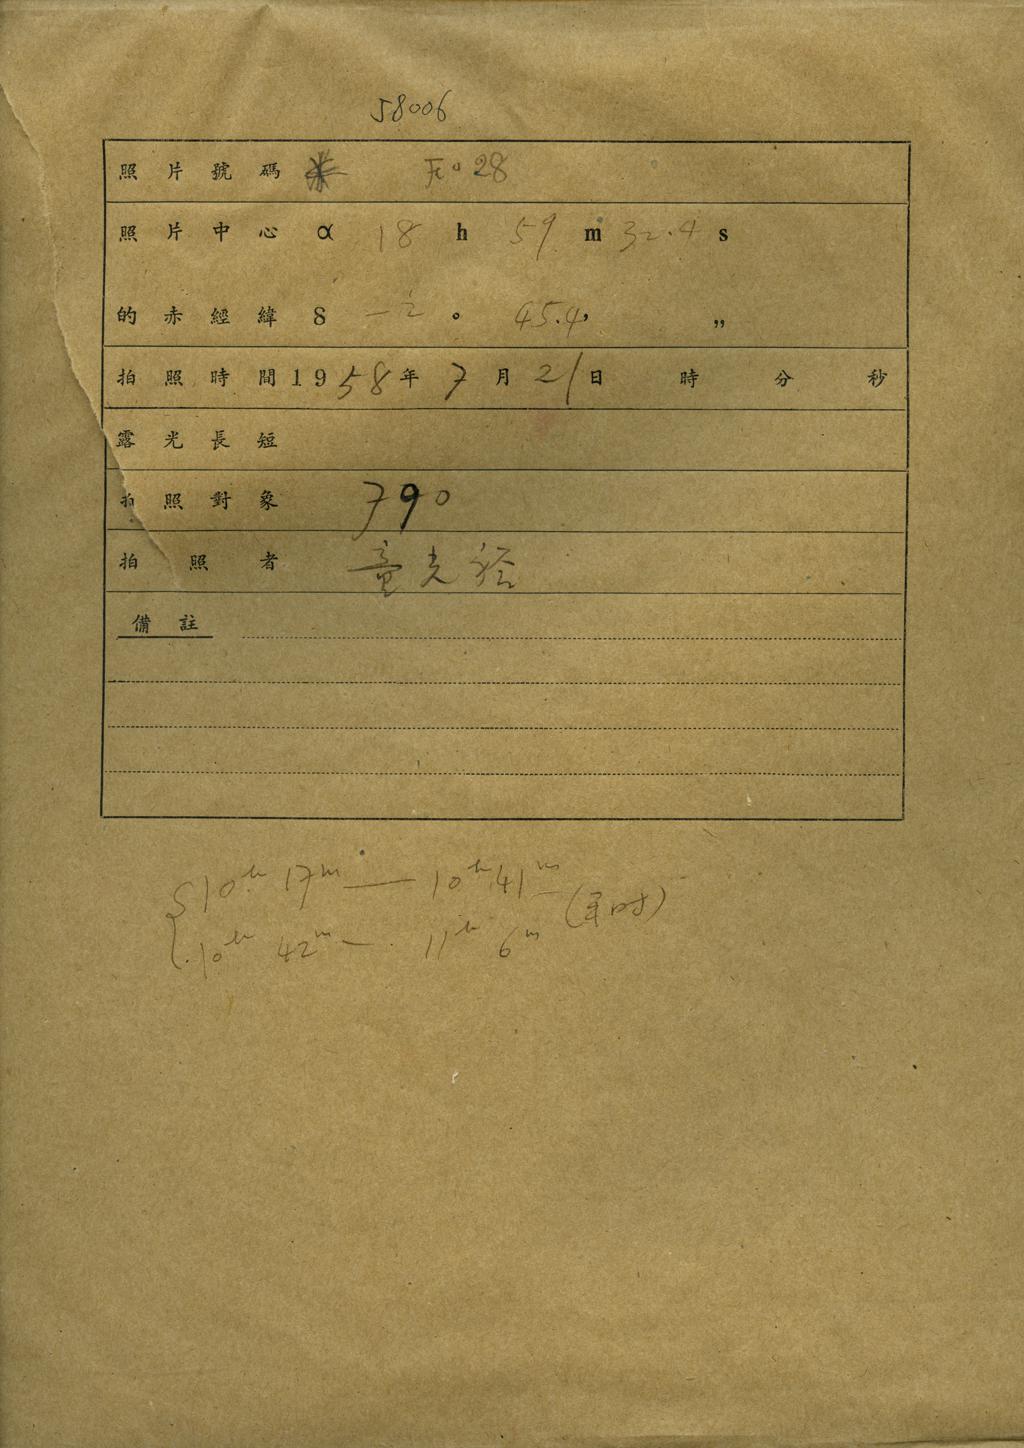 58006
照片號碼 028
照片中心 α 18 h 59 m 32.4 s
的赤經緯 δ -2 ° 45.4 ′ ″
拍照時間 1958年 7月 21日 時 分 秒
露光長短
拍照對象 790
拍照者 童光
備註
10h 17m — 10h 41m
10h 42m — 11h 6m